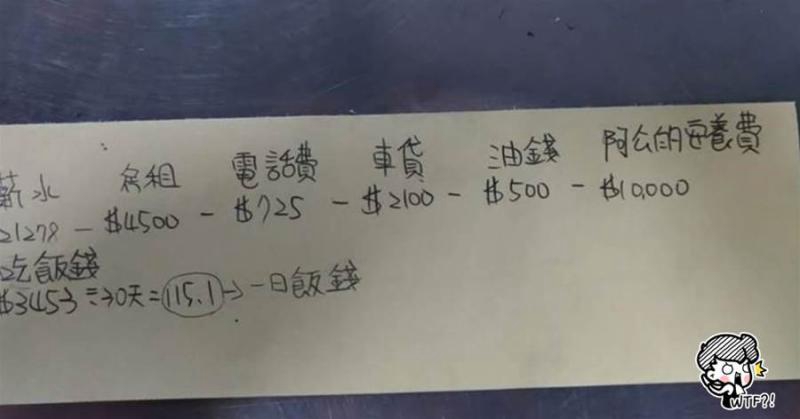 薪水 房租 電話費 車貸 油錢 阿公的安養費
21278 - $4500 - $725 - $2100 - $500 - $10,000
吃飯錢
$3453÷30天=115.1→一日飯錢
WTF?!